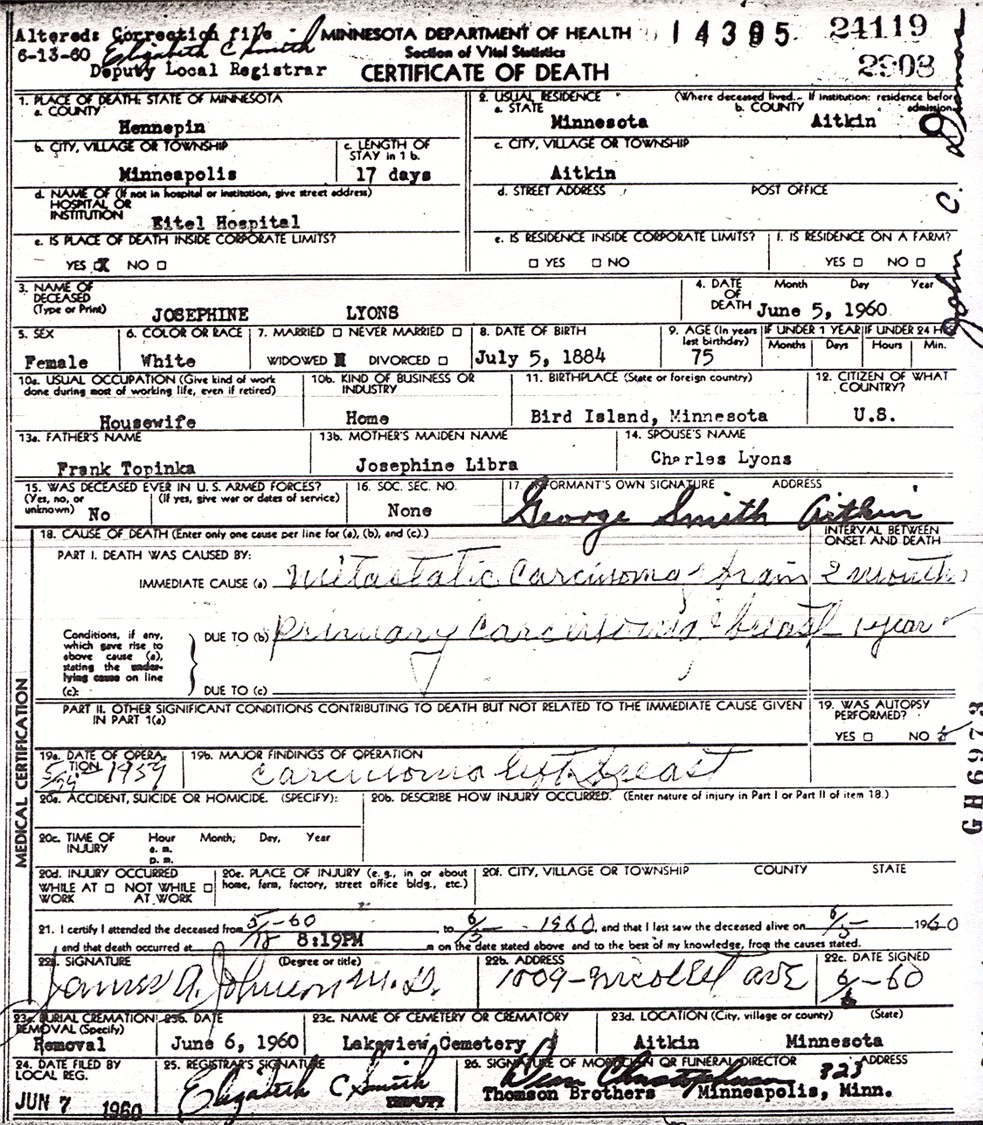 Altered: Correction file MINNESOTA DEPARTMENT OF HEALTH 14395 24119
6-13-60 Elizabeth C Smith Section of Vital Statistics 2908
Deputy Local Registrar CERTIFICATE OF DEATH
1. PLACE OF DEATH: STATE OF MINNESOTA
a. COUNTY
Hennepin
2. USUAL RESIDENCE (Where deceased lived. If institution: residence before admission)
a. STATE b. COUNTY
Minnesota Aitkin
b. CITY, VILLAGE OR TOWNSHIP c. LENGTH OF STAY in 1 b.
Minneapolis 17 days
c. CITY, VILLAGE OR TOWNSHIP
Aitkin
d. NAME OF (If not in hospital or institution, give street address)
HOSPITAL OR
INSTITUTION Eitel Hospital
d. STREET ADDRESS POST OFFICE
e. IS PLACE OF DEATH INSIDE CORPORATE LIMITS?
YES X NO
e. IS RESIDENCE INSIDE CORPORATE LIMITS? f. IS RESIDENCE ON A FARM?
YES NO YES NO
3. NAME OF
DECEASED
(Type or Print) JOSEPHINE LYONS
4. DATE Month Day Year
OF
DEATH June 5, 1960
5. SEX
Female
6. COLOR OR RACE
White
7. MARRIED NEVER MARRIED
WIDOWED X DIVORCED
8. DATE OF BIRTH
July 5, 1884
9. AGE (In years last birthday) IF UNDER 1 YEAR IF UNDER 24
75 Months Days Hours Min.
10a. USUAL OCCUPATION (Give kind of work
done during most of working life, even if retired)
Housewife
10b. KIND OF BUSINESS OR
INDUSTRY
Home
11. BIRTHPLACE (State or foreign country)
Bird Island, Minnesota
12. CITIZEN OF WHAT
COUNTRY?
U.S.
13a. FATHER'S NAME
Frank Topinka
13b. MOTHER'S MAIDEN NAME
Josephine Libra
14. SPOUSE'S NAME
Charles Lyons
15. WAS DECEASED EVER IN U.S. ARMED FORCES?
(Yes, no, or unknown) (If yes, give war or dates of service)
No
16. SOC. SEC. NO.
None
17. INFORMANT'S OWN SIGNATURE ADDRESS
George Smith Aitkin
18. CAUSE OF DEATH (Enter only one cause per line for (a), (b), and (c).) INTERVAL BETWEEN
ONSET AND DEATH
PART I. DEATH WAS CAUSED BY:
IMMEDIATE CAUSE (a) Metastatic Carcinoma brain 2 months
Conditions, if any,
which gave rise to
above cause (a),
stating the under-
lying cause on line
(c):
DUE TO (b) primary carcinoma breast 1 year
DUE TO (c)
PART II. OTHER SIGNIFICANT CONDITIONS CONTRIBUTING TO DEATH BUT NOT RELATED TO THE IMMEDIATE CAUSE GIVEN
IN PART 1(a)
19. WAS AUTOPSY
PERFORMED?
YES NO
19a. DATE OF OPERA-
TION 1959
19b. MAJOR FINDINGS OF OPERATION
carcinoma left breast
20a. ACCIDENT, SUICIDE OR HOMICIDE. (SPECIFY):
20b. DESCRIBE HOW INJURY OCCURRED. (Enter nature of injury in Part I or Part II of item 18.)
20c. TIME OF Hour Month; Day, Year
INJURY a. m.
p. m.
20d. INJURY OCCURRED
WHILE AT NOT WHILE
WORK AT WORK
20e. PLACE OF INJURY (e. g., in or about
home, farm, factory, street office bldg., etc.)
20f. CITY, VILLAGE OR TOWNSHIP COUNTY STATE
21. I certify I attended the deceased from 5/18-60 to 6/5 1960, and that I last saw the deceased alive on 6/5 1960
and that death occurred at 8:19PM m on the date stated above and to the best of my knowledge, from the causes stated.
22a. SIGNATURE (Degree or title)
James A. Johnson M.D.
22b. ADDRESS
1009-Nicollet Ave
22c. DATE SIGNED
6/6-60
23a. BURIAL CREMATION
REMOVAL (Specify)
Removal
23b. DATE
June 6, 1960
23c. NAME OF CEMETERY OR CREMATORY
Lakeview Cemetery
23d. LOCATION (City, village or county) (State)
Aitkin Minnesota
24. DATE FILED BY
LOCAL REG.
JUN 7 1960
25. REGISTRAR'S SIGNATURE
Elizabeth C Smith
DEPUTY
26. SIGNATURE OF MORTICIAN OR FUNERAL DIRECTOR ADDRESS
Dean Christopherson 323
Thomson Brothers Minneapolis, Minn.
MEDICAL CERTIFICATION
John C.
GH6973